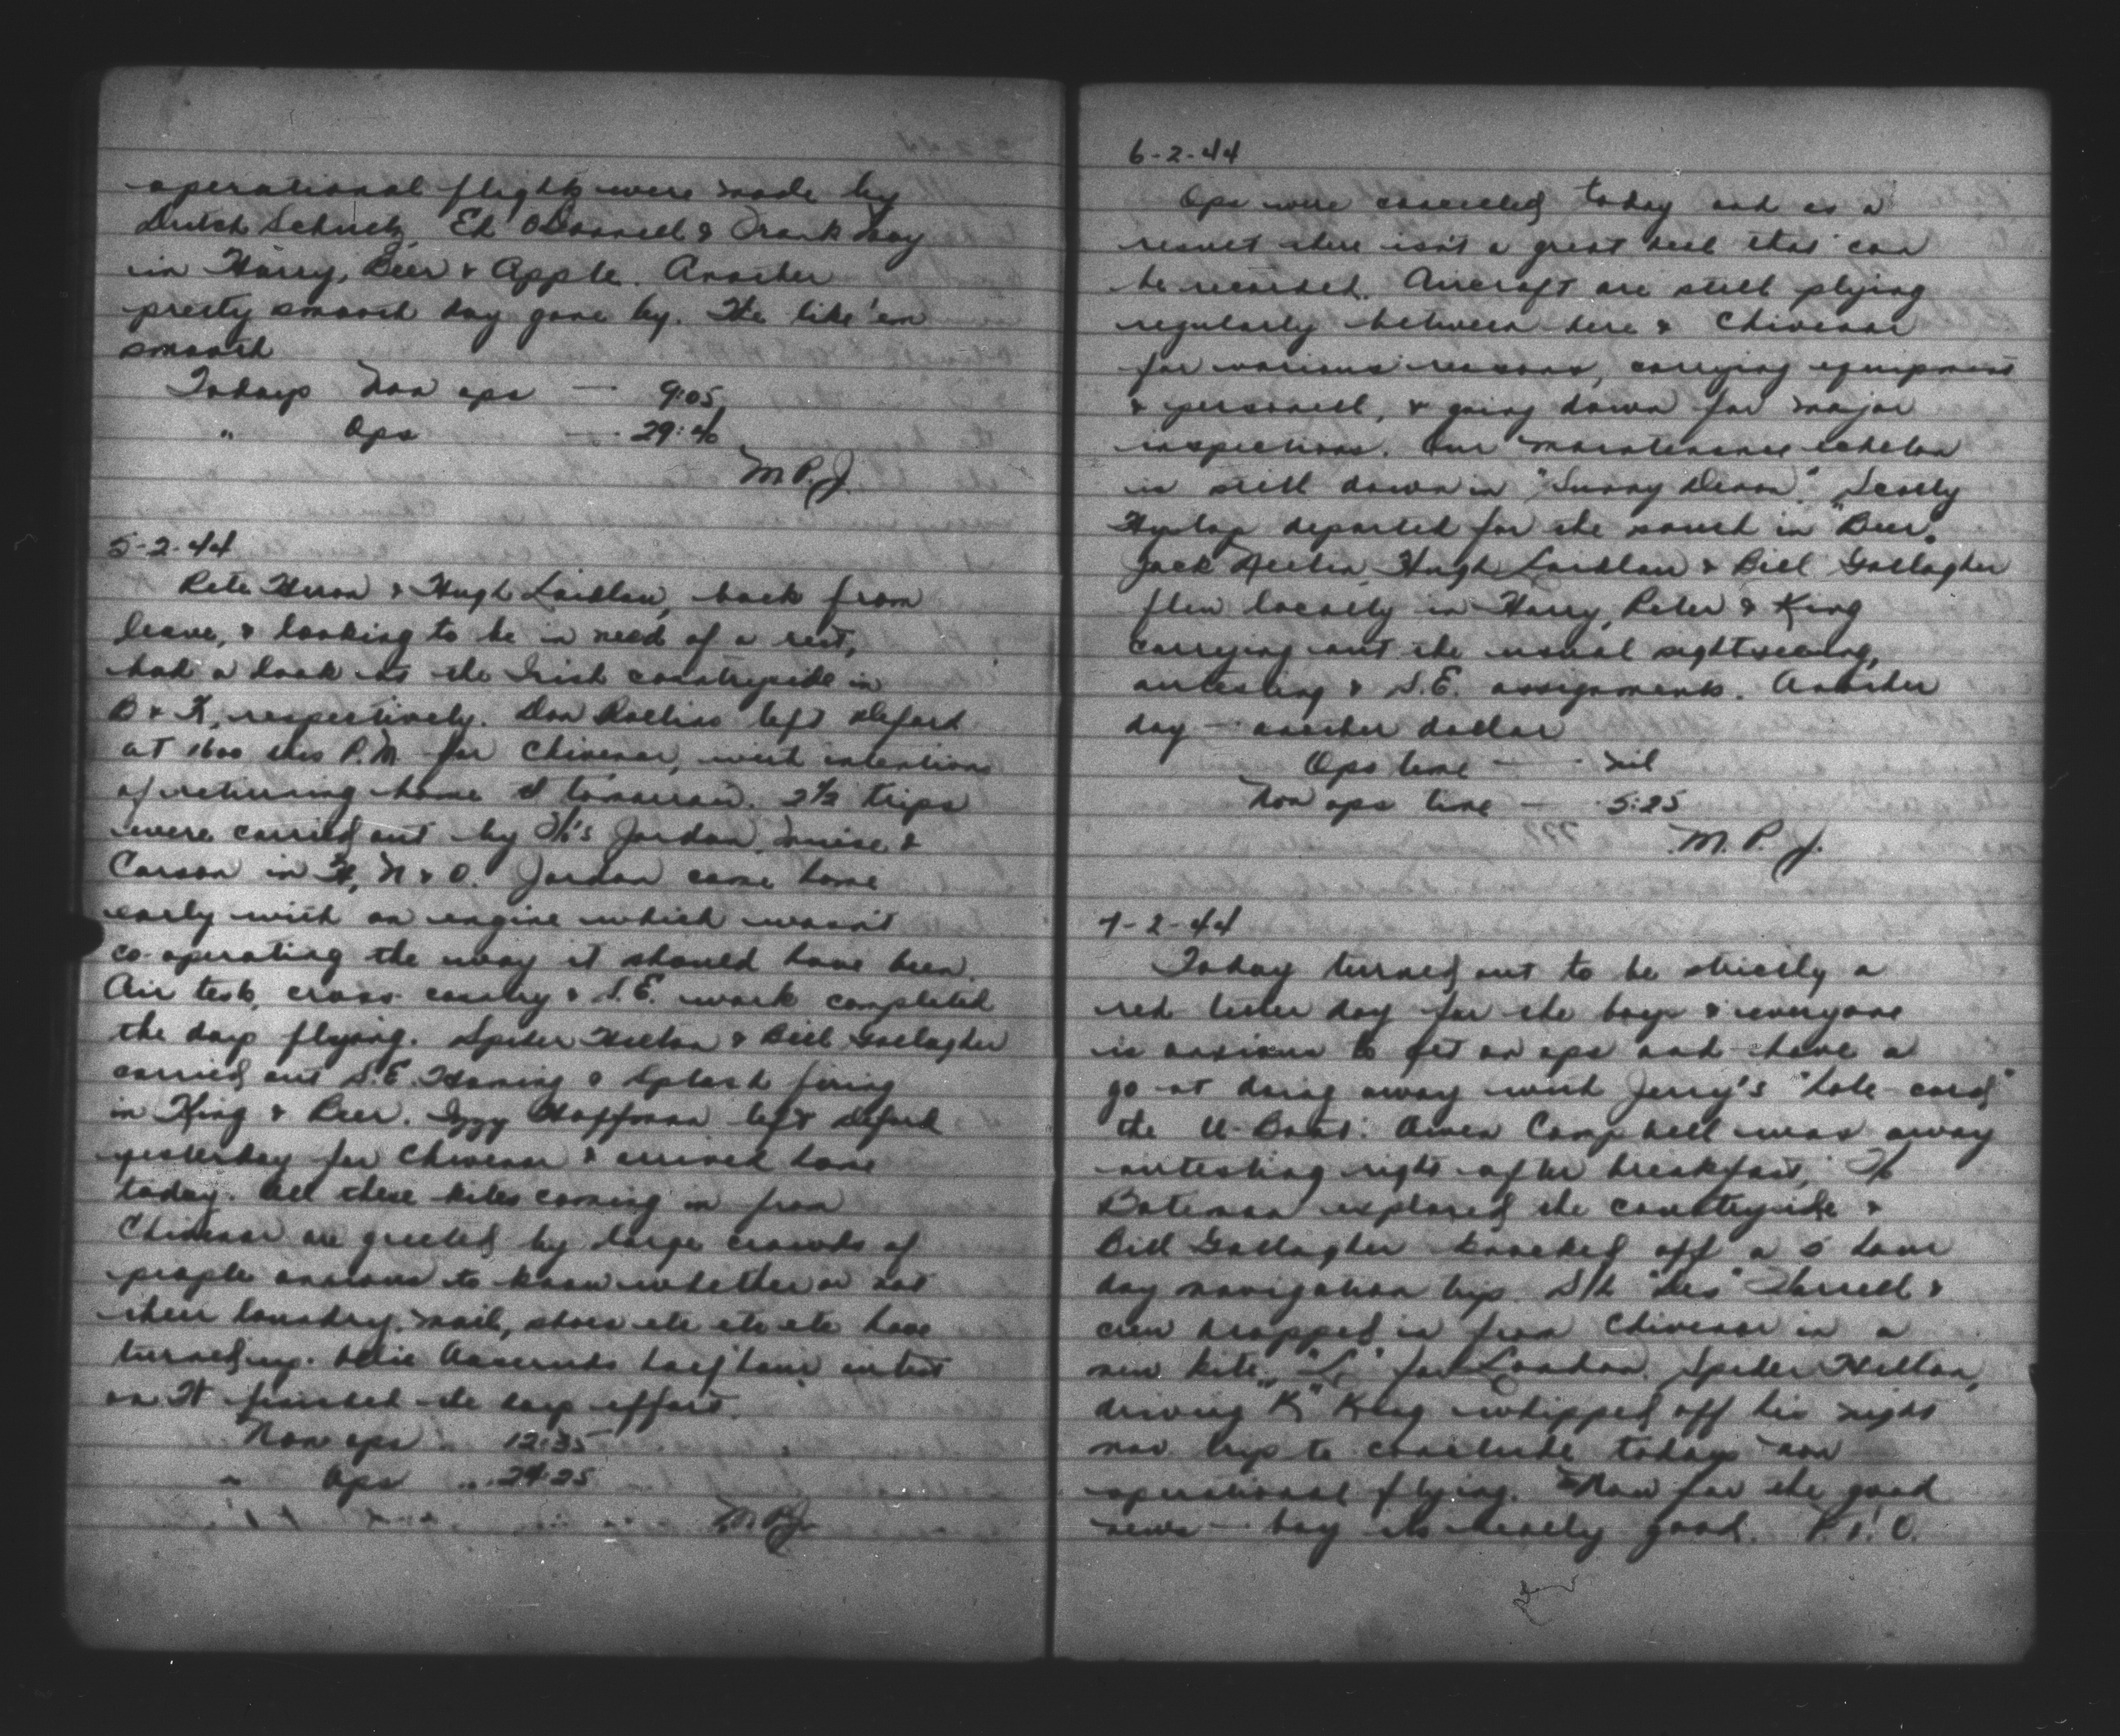 operational flights were made by
Dutch Schultz, Ed O'Donnell & Frank Day
in Harry, Beer & Apple. Another
pretty smooth day gone by. We like 'em
smooth
Todays Non ops — 9:05
" Ops — 29:40
M.P.J.
5-2-44
Pete Heron & Hugh Laidlaw, back from
leave, & looking to be in need of a rest,
had a look at the Irish countryside in
B & K, respectively. Don Rollins left
at 1600 this P.M for Chivenor, with intentions
of returning home tomorrow. 2½ trips
were carried out by Jordan, &
Carson in H, N & O. Jordan came home
early with an engine which wasn't
co-operating the way it should have been.
Air test, cross country & S.E. work completed
the days flying. Spider Hilton & Bill Gallagher
carried out S.E. Homing & Splash firing
in King & Beer. Izzy Hoffman left
yesterday for Chivenor & arrived home
today. All these kites coming in from
Chivenor are greeted by large crowds of
people anxious to know whether or not
their laundry, mail, shoes etc etc etc have
turned up. half hour airtest
on H finished the days effort.
Non ops 12:35
" Ops 24:25
M.P.J.
6-2-44
Ops were cancelled today and as a
result there isn't a great deal that can
be recorded. Aircraft are still plying
regularly between here & Chivenor
for various reasons, carrying equipment
& personell, & going down for major
inspections. Our maintenance echelon
is still down in "Sunny Devon." Scotty
Hyslop departed for the south in "Beer."
Jack Hugh Laidlaw & Bill Gallagher
flew locally in Harry, Peter & King
carrying out the usual sightseeing,
airtesting & S.E. assignments. Another
day — another dollar
Ops time — nil
Non ops time — 5:25
M.P.J.
7-2-44
Today turned out to be strictly a
red letter day for the boys & everyone
is anxious to get on ops and have a
go at doing away with Jerry's "hole-card"
the U-Boat. Owen Campbell was away
airtesting right after breakfast, F/O
Bateman explored the countryside &
Bill Gallagher knocked off a 5 hour
day navigation trip. S/L "Des" Farrell &
crew dropped in from Chivenor in a
new kite, "L" for London. Spider Hilton,
driving "K" King whipped off his night
nav trip to conclude todays non
operational flying. Now for the good
news — boy its really good. P.T.O.